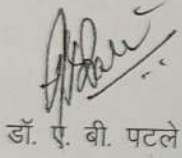 डॉ. ए. बी. पटले